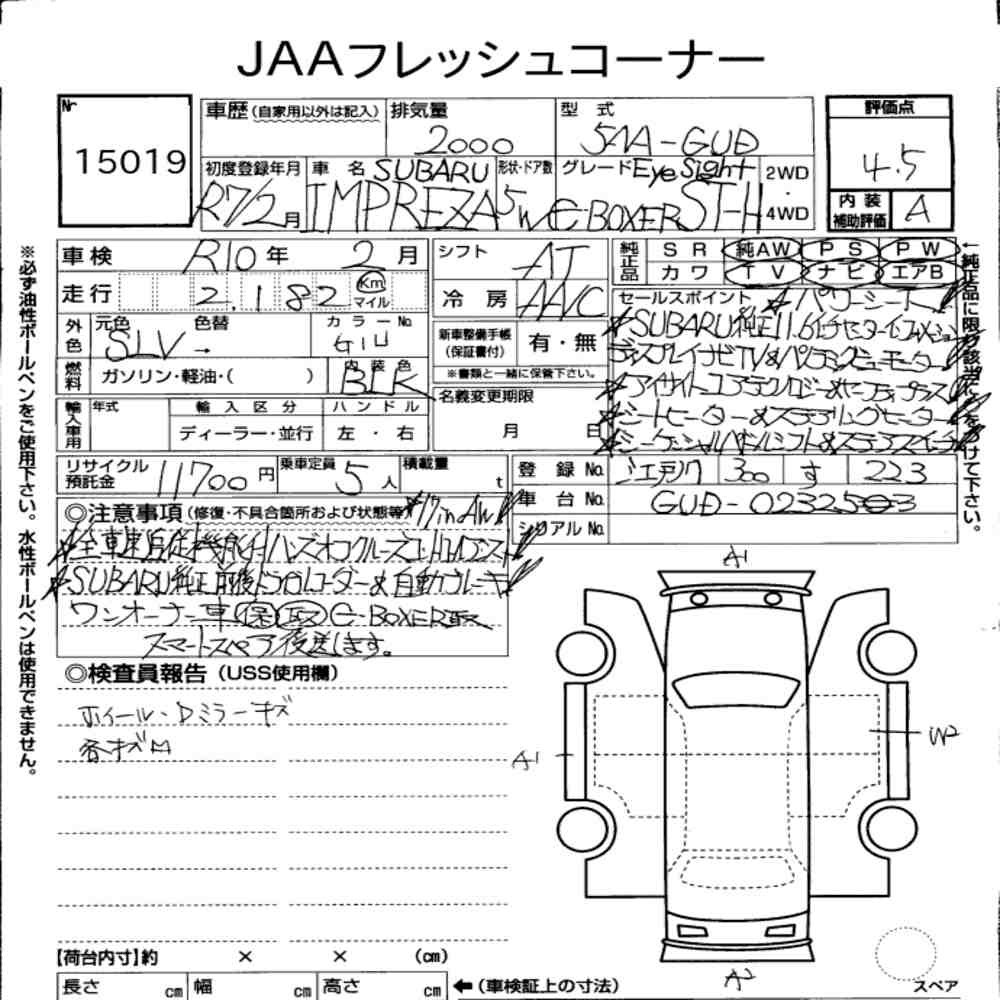 JAAフレッシュコーナー
Nr
15019
車歴(自家用以外は記入)
排気量
2000
型 式
5AA-GUD
評価点
4.5
初度登録年月
R7/2月
車 名 SUBARU
IMPREZA
形状・ドア数
5W
グレード EyeSight
e-BOXER ST-H
2WD
・
4WD
内 装
補助評価
A
車検 R10年 2月
シフト AT
純正品
SR 純AW PS PW
カワ TV ナビ エアB
走行 2,182 Km
マイル
冷 房 AAC
セールスポイント ★パワーシート
★SUBARU純正11.6インチセンターインフォメーション
ディスプレイナビTV&パノラミックビューモニター
★アイサイトコアテクノロジー&セーフティプラス
★シートヒーター&ステアリングヒーター
★シーケンシャルパドルシフト&ステアスイッチ
外色
元色 色替
SLV→
カラーNo.
G1U
新車整備手帳
(保証書付)
有・無
※書類と一緒に保管下さい。
燃料
ガソリン・軽油・( )
内装色
BLK
名義変更期限
月 日
輸入車用
年式
輸入区分
ハンドル
ディーラー・並行
左 ・ 右
リサイクル
預託金
11700円
乗車定員 5人
積載量 t
登 録 No. 江戸川 300 す 223
車 台 No. GUD-023253
シリアル No.
◎注意事項(修復・不具合箇所および状態等) ★17inAW
★全車速追従機能付ハンズオフクルーズコントロールアシスト
★SUBARU純正前後ドラレコーダー&自動ブレーキ
ワンオーナー車 保 取 e-BOXER取
スマートスペア後送します。
◎検査員報告(USS使用欄)
ホイール・Dミラーキズ
各キズ凹
A1
A1
W2
A2
【荷台内寸】約 × × (cm)
長さ cm 幅 cm 高さ cm ←(車検証上の寸法)
スペア
※必ず油性ボールペンをご使用下さい。水性ボールペンは使用できません。
←純正品に限り該当に○をつけて下さい。